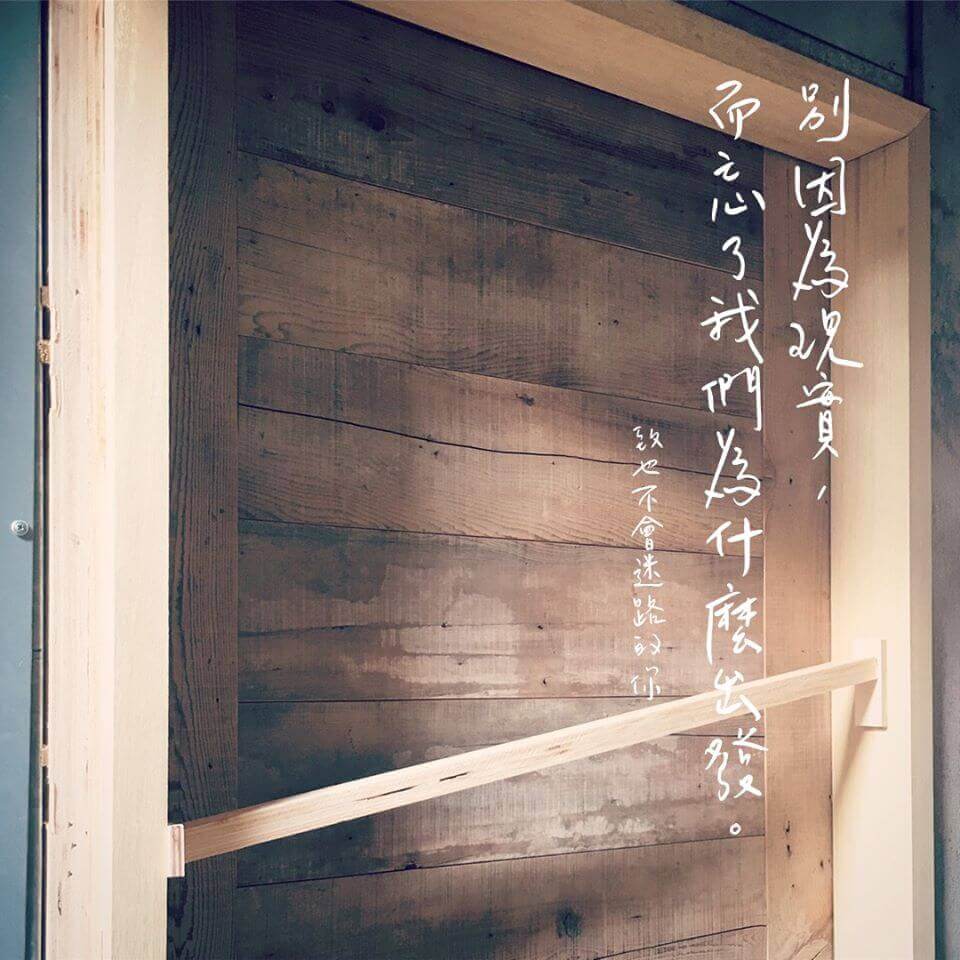 別因為現實，
而忘了我們為什麼出發。
致也不會迷路的你